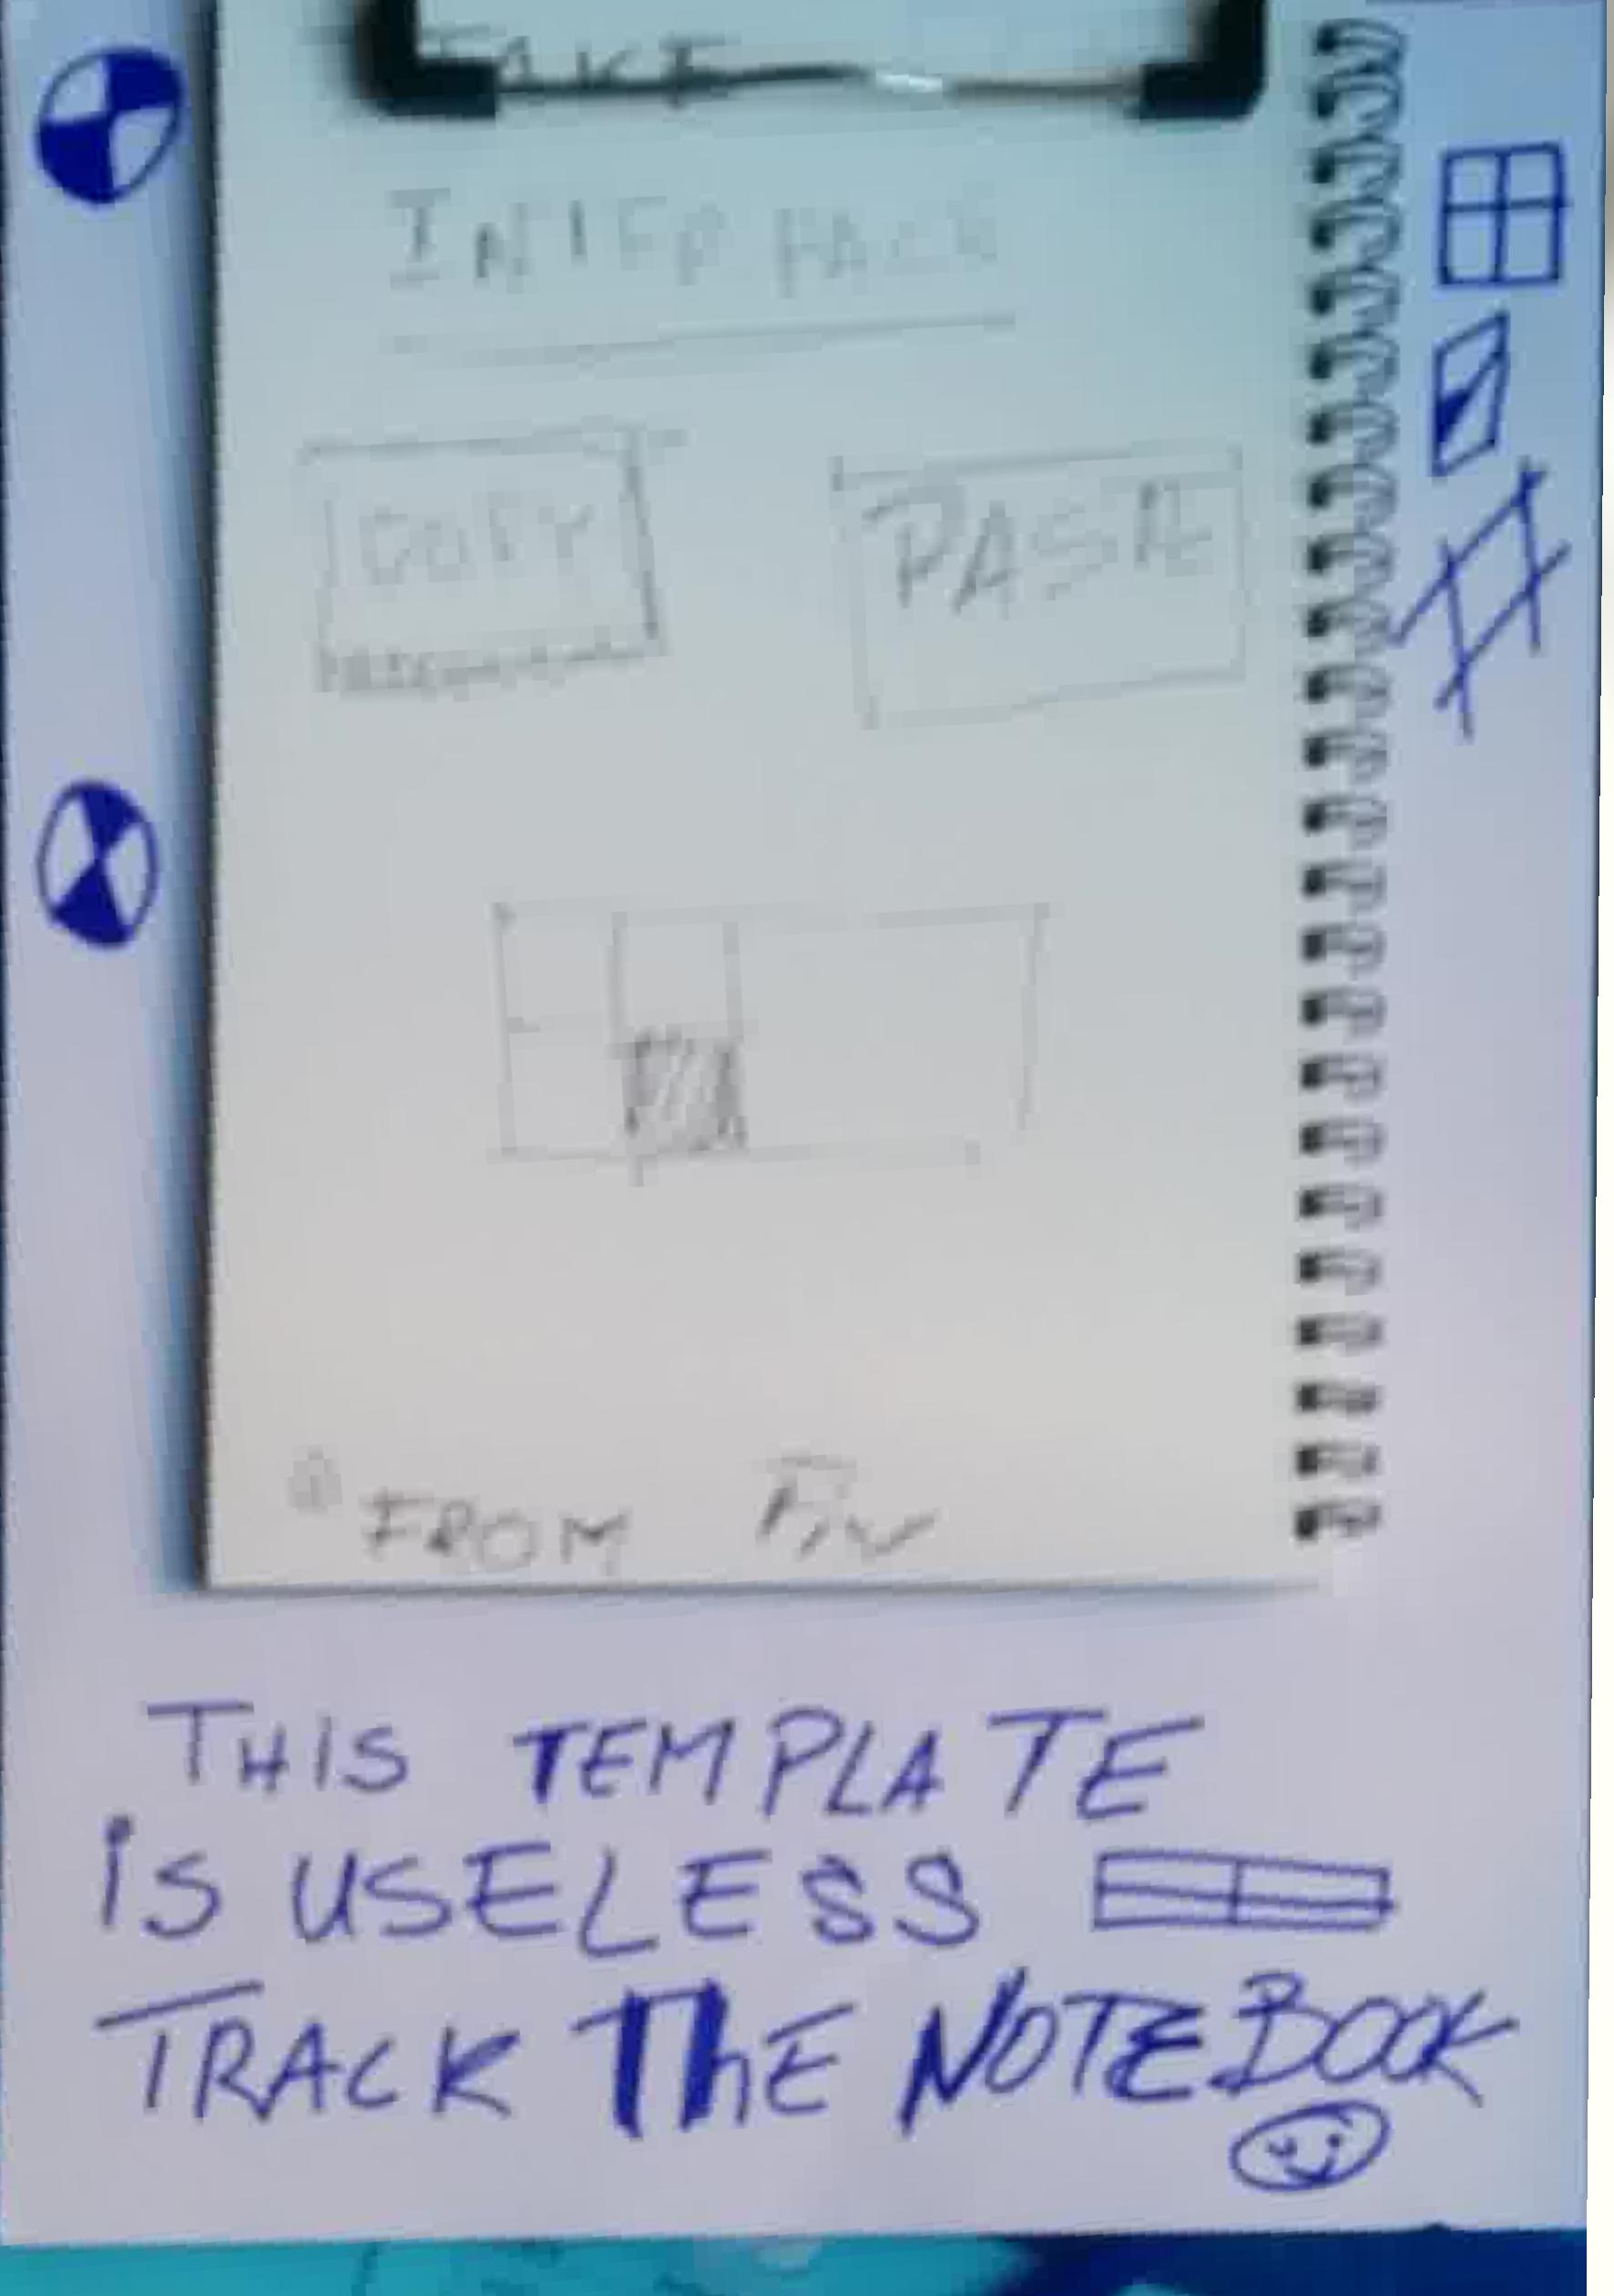 FAKE
INTERFACE
COPY PASTE
FROM
THIS TEMPLATE
is USELESS
TRACK ThE NOTEBOOK